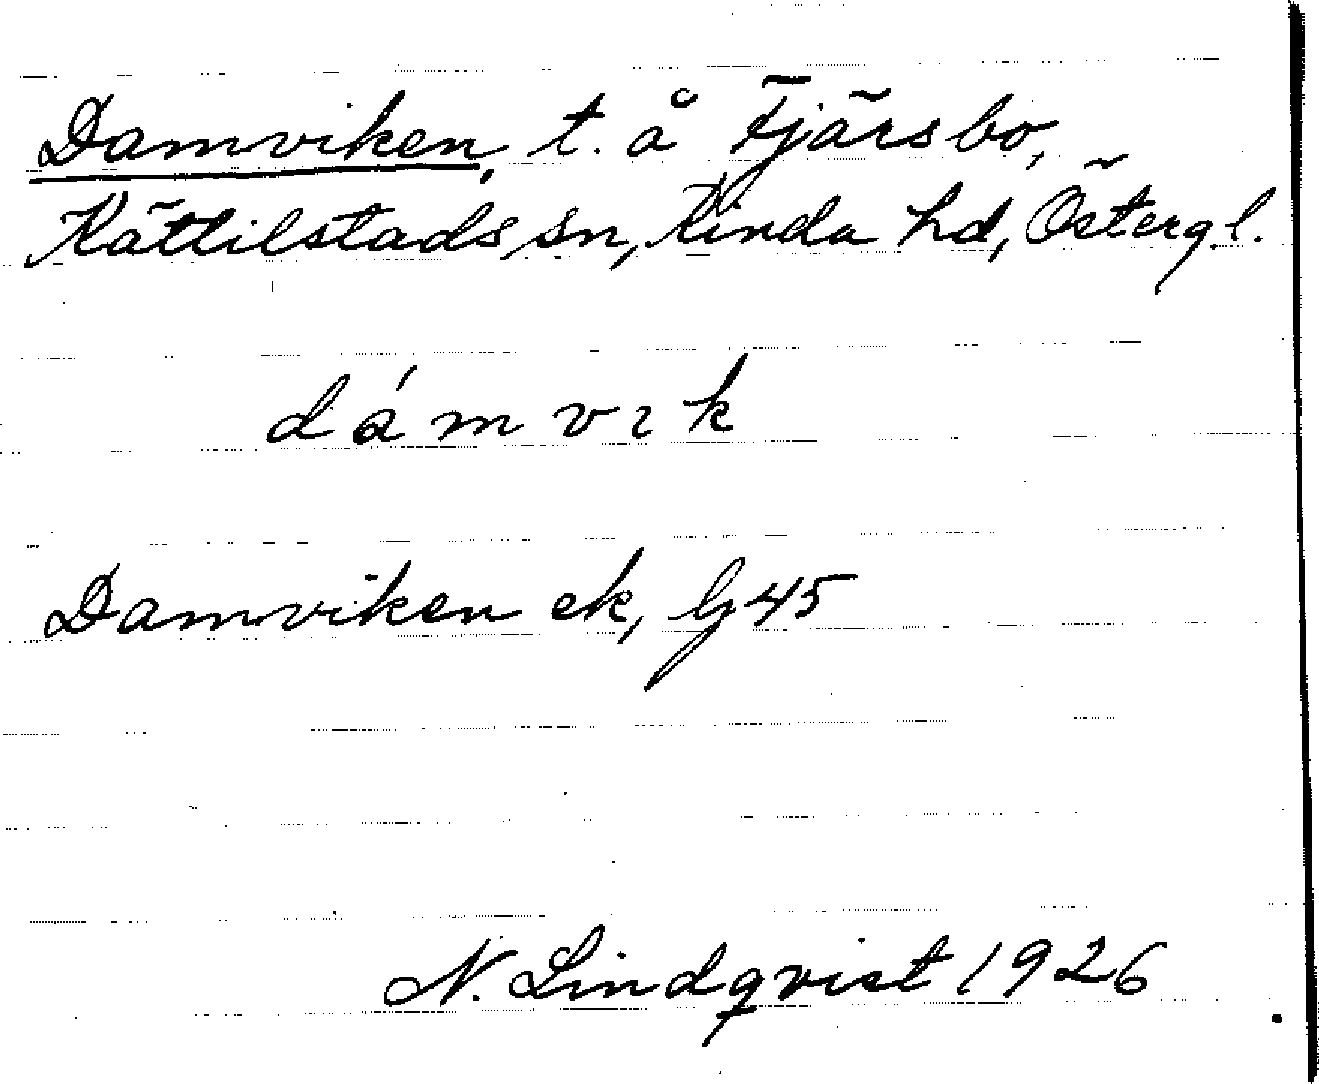 Damviken, t. å Fjärsbo,
Kättilstads sn, Kinda hd, Östergl.
dámvık
Damviken ek, G45
N. Lindqvist 1926